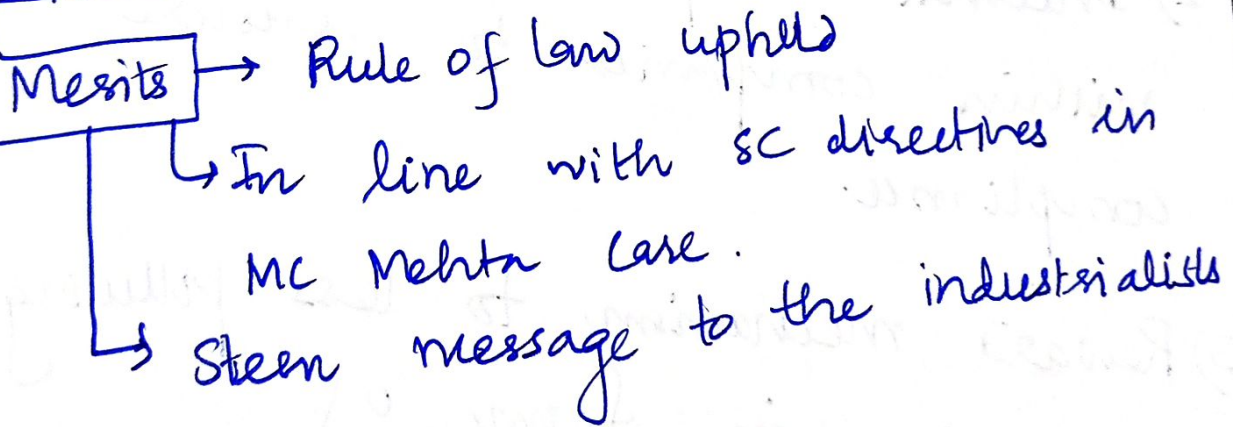 Merits → Rule of law upheld
↳ In line with SC directives in
MC Mehta Case.
↳ Stern message to the industrialists